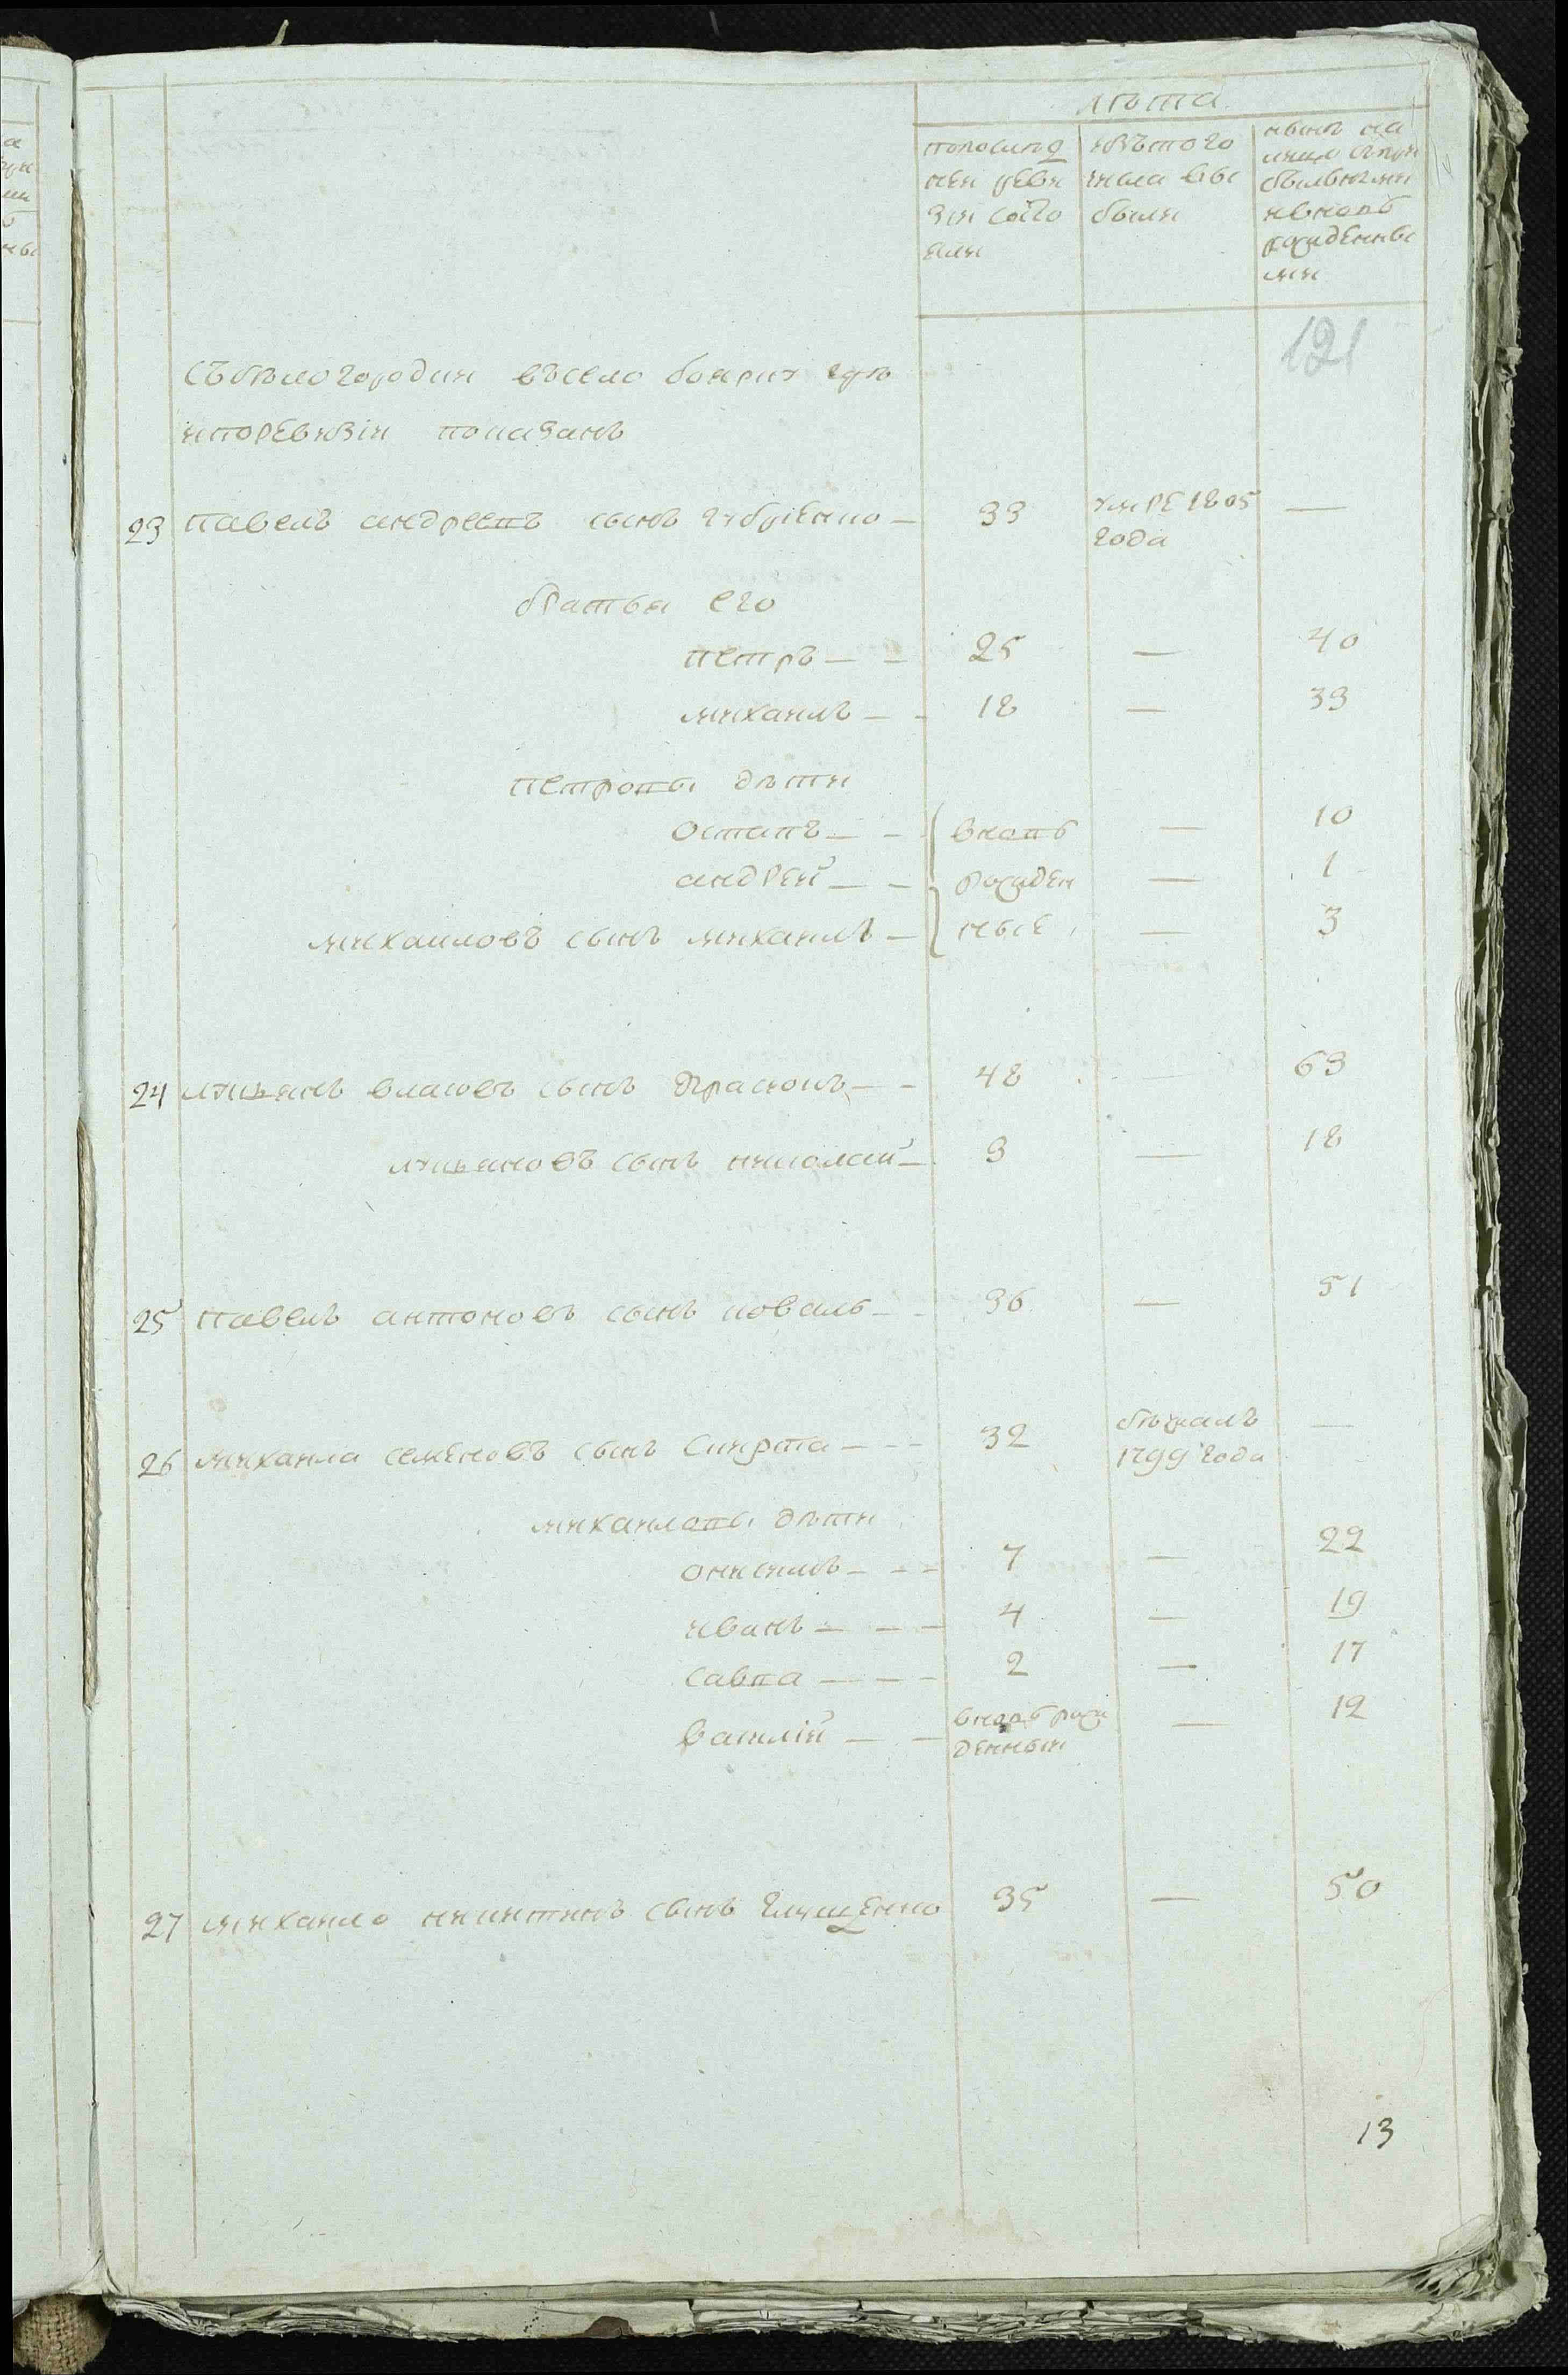 лѣта
по послѣд
ней реви
зіи состо
яли
изъ того
числа вы
были
нынѣ на
лицо съ при
былыми
и вновь
рожденны
ми
121
съ бѣлогородки въ село боярку гдѣ
и по ревизіи показанъ
23 павелъ андреевъ сынъ губренко — 33 умре 1805 —
года
братья его
петръ — — 25 — 40
михаилъ — — 18 — 33
петровы дѣти
остапъ — — вновь — 10
андрей — — рожден — 1
михаиловъ сынъ михаилъ — ные — 3
24 лукьянъ власовъ сынъ — — 48 — 63
лукьяновъ сынъ николай — 3 — 18
25 павелъ антоновъ сынъ коваль — — 36 — 51
26 михаила семеновъ сынъ скирта — — 32 бѣжалъ —
1799 года
михаиловы дѣти
онисимъ — — — 7 — 22
иванъ — — — 4 — 19
савва — — — 2 — 17
василій — — вновь рож — 12
денный
27 михаило никитинъ сынъ глущенко 35 — 50
13